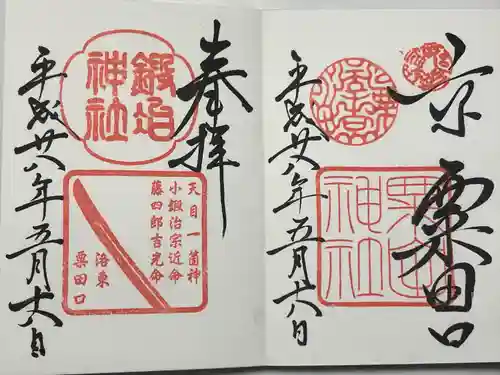 京
粟田口
粟田
神社
平成廿八年五月廿八日
奉拝
鍛冶
神社
天目一箇神
小鍛冶宗近命
藤四郎吉光命
洛東
粟田口
平成廿八年五月廿八日